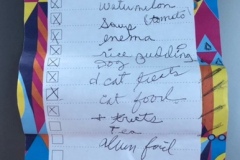 Watermelon
Soup (tomato)
enema
rice pudding
dog
cat treats
cat food
+ treats
Tea
alum foil